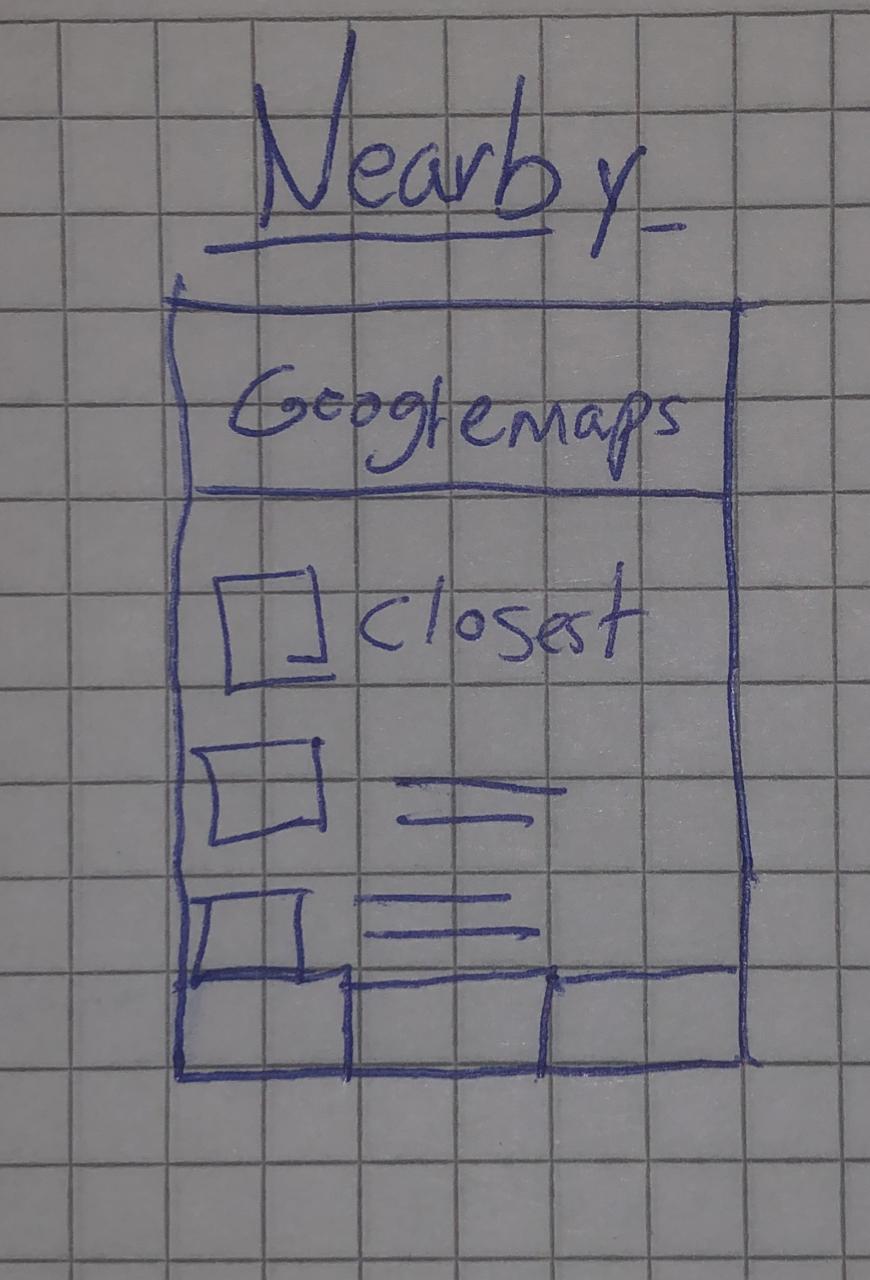 Nearby
Googlemaps
Closest